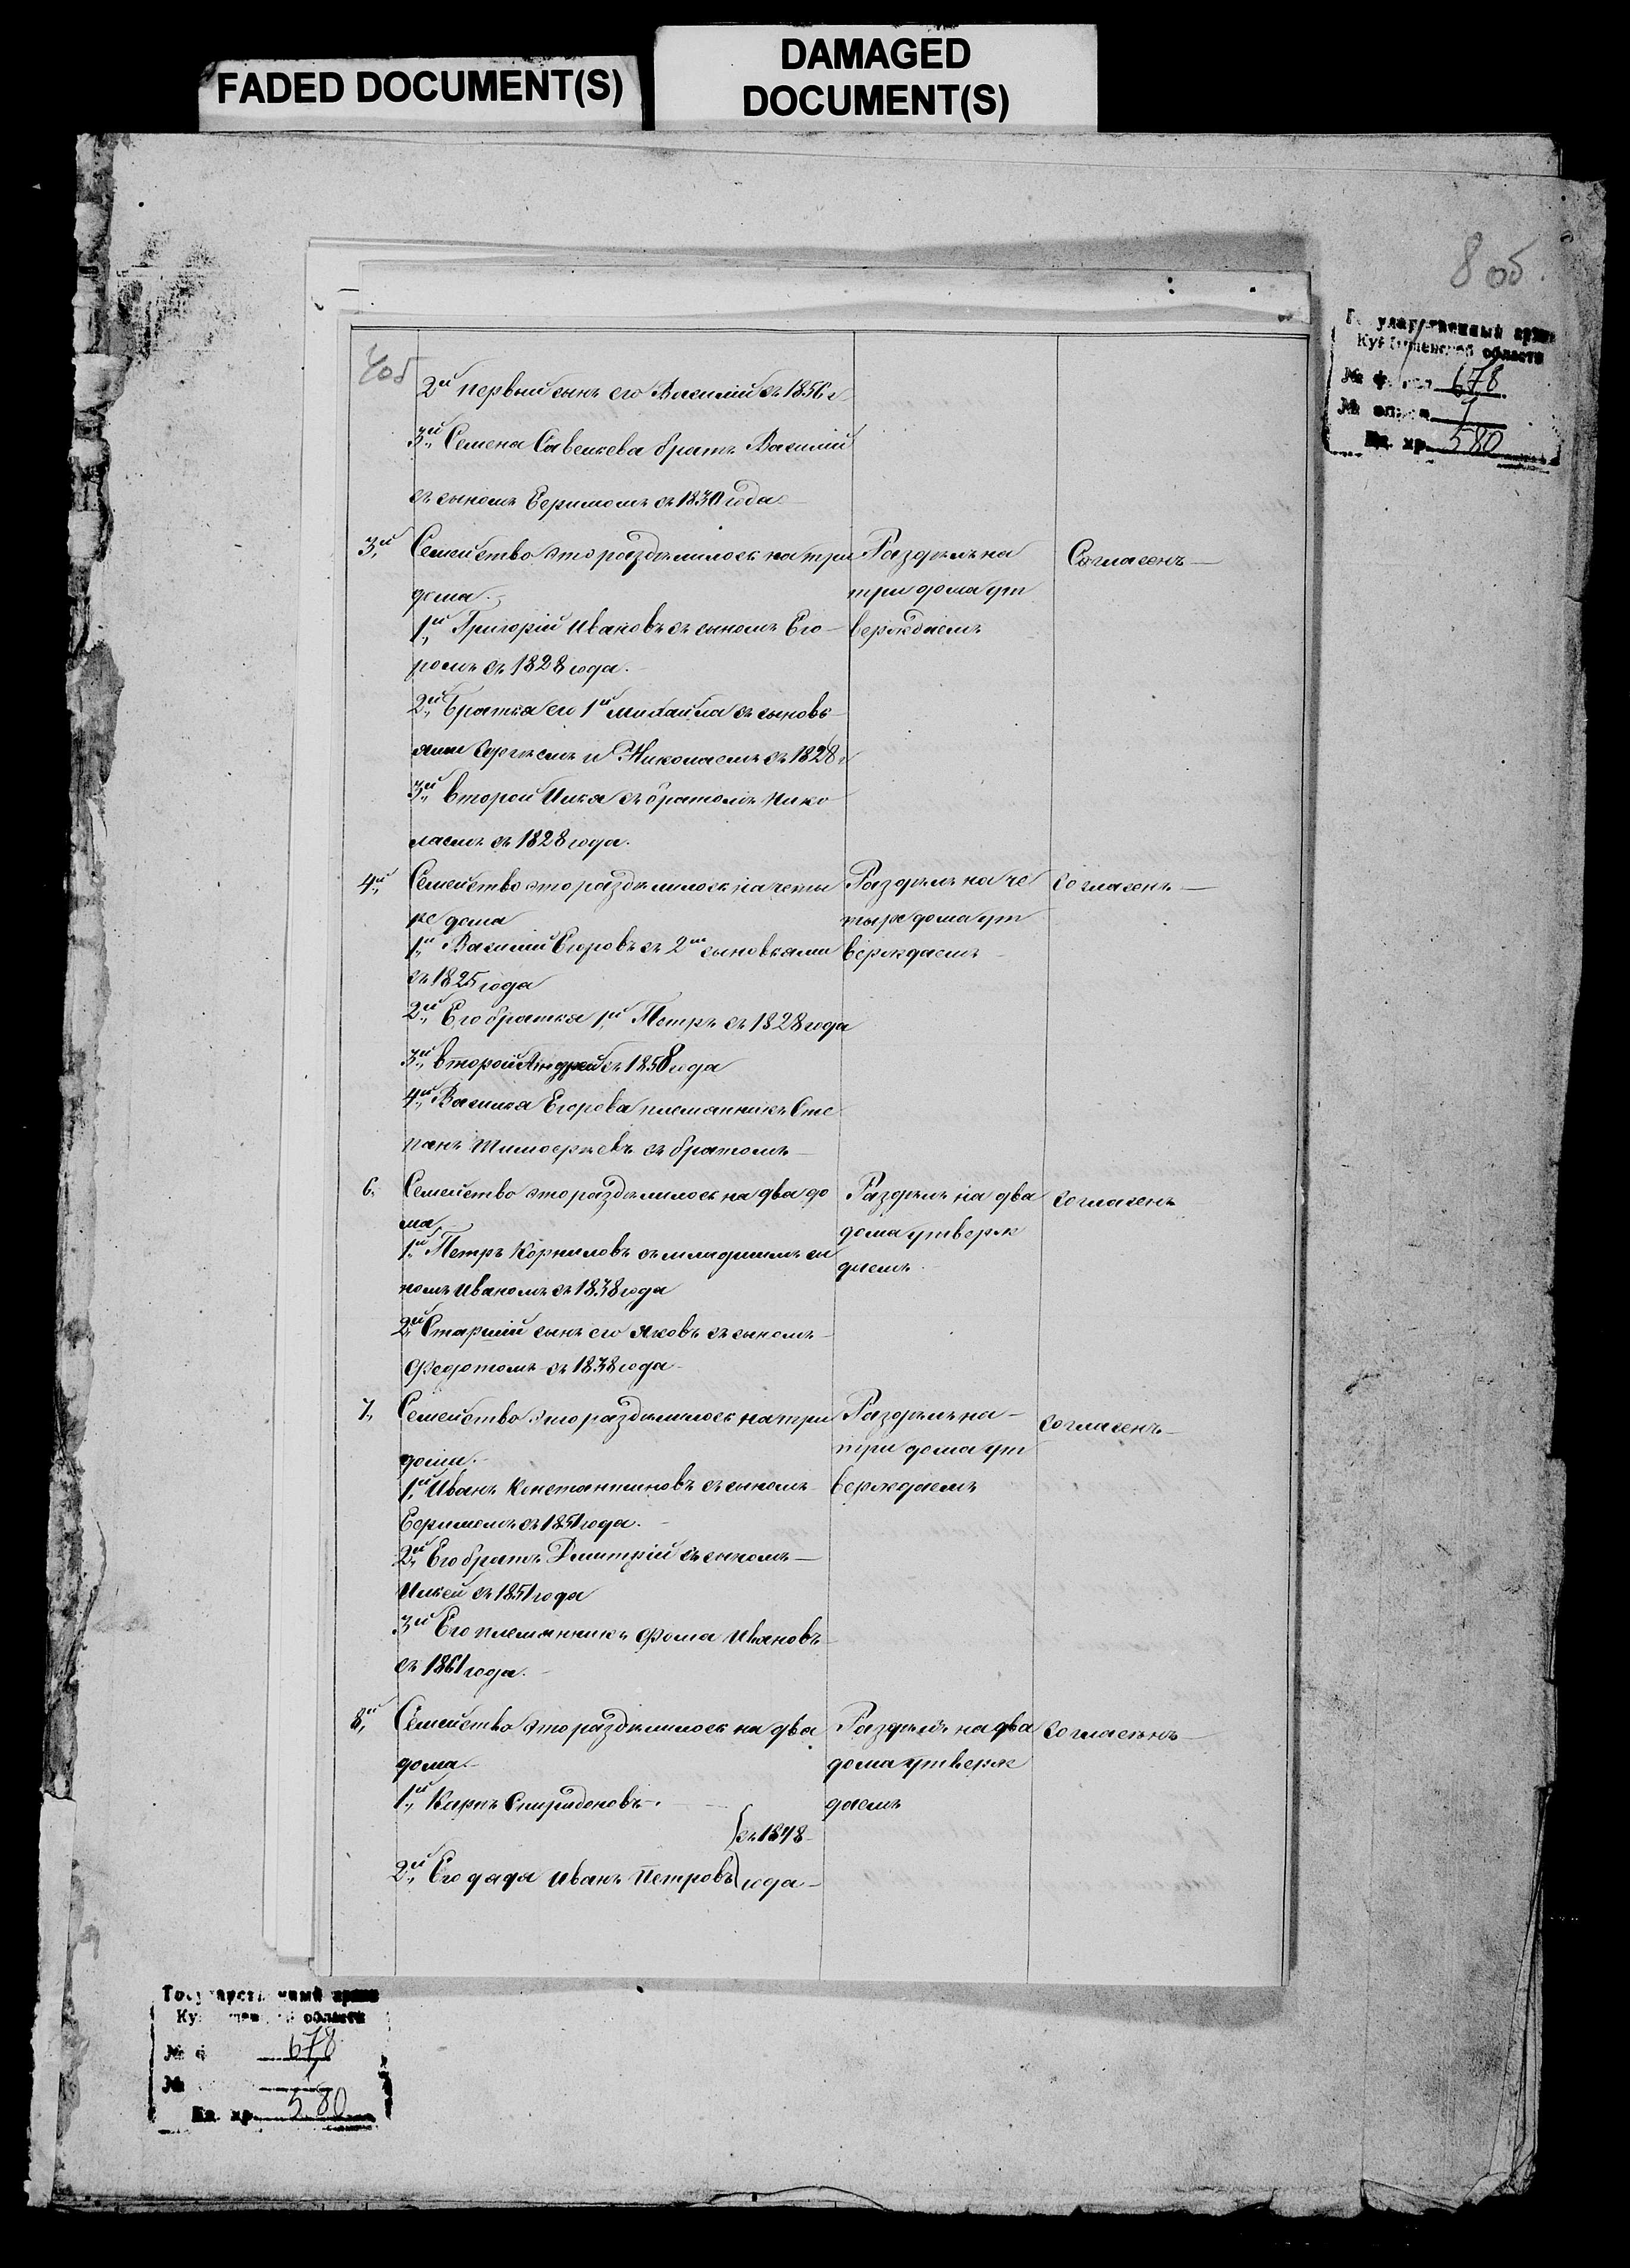 FADED DOCUMENT(S)
DAMAGED
DOCUMENT(S)
8 об
Государственный архив
Куйбышевской области
№ фонда 678
№ описи 1
Ед. хр. 580
4об
2й первый сынъ его Василий съ 1856 г
3й Семена Савельева братъ Василий
съ сыномъ Ефримомъ съ 1830 года
3й Семейство это раздѣлилось на три
дома.
1й Григорій Ивановъ съ сыномъ Его
ромъ съ 1828 года.
2й Братья его 1й Михаила съ сыновь
ями Сергѣемъ и Николаемъ съ 1828 г
3й второй Илья съ братомъ Нико
лаемъ съ 1828 года.
Раздѣлъ на
три дома ут
верждаемъ
Согласенъ
4й Семейство это раздѣлилось на четы
ре дома
1й Василий Егоровъ съ 2мя сыновьями
съ 1825 года
2й Его братья 1й Петръ съ 1828 года
3й второй Андрей съ 1858 года
4й Василья Егорова племянникъ Сте
панъ Тимофеевъ съ братомъ
Раздѣлъ на че
тыре дома ут
верждаемъ
Согласенъ
6, Семейство это раздѣлилось на два до
ма
1й Петръ Корниловъ съ младшимъ сы
номъ Иваномъ съ 1838 года
2й Старшій сынъ его Яковъ съ сыномъ
Федотомъ съ 1838 года
Раздѣлъ на два
дома утверж
даемъ
Согласенъ
7, Семейство это раздѣлилось на три
дома.
1й Иванъ Константиновъ съ сыномъ
Ефримомъ съ 1851 года.
2й Его братъ Дмитрій съ сыномъ
Ильей съ 1851 года
3й Его племянникъ Фома Ивановъ
съ 1861 года.
Раздѣлъ на
три дома ут
верждаемъ
Согласенъ
8й Семейство это раздѣлилось на два
дома.
1й Карпъ Спиридоновъ
съ 1848
2й Его дядя Иванъ Петровъ года
Раздѣлъ на два
дома утверж
даемъ
Согласенъ
Государственный архив
Куйбышевской области
№ 678
№ 1
Ед. хр. 580